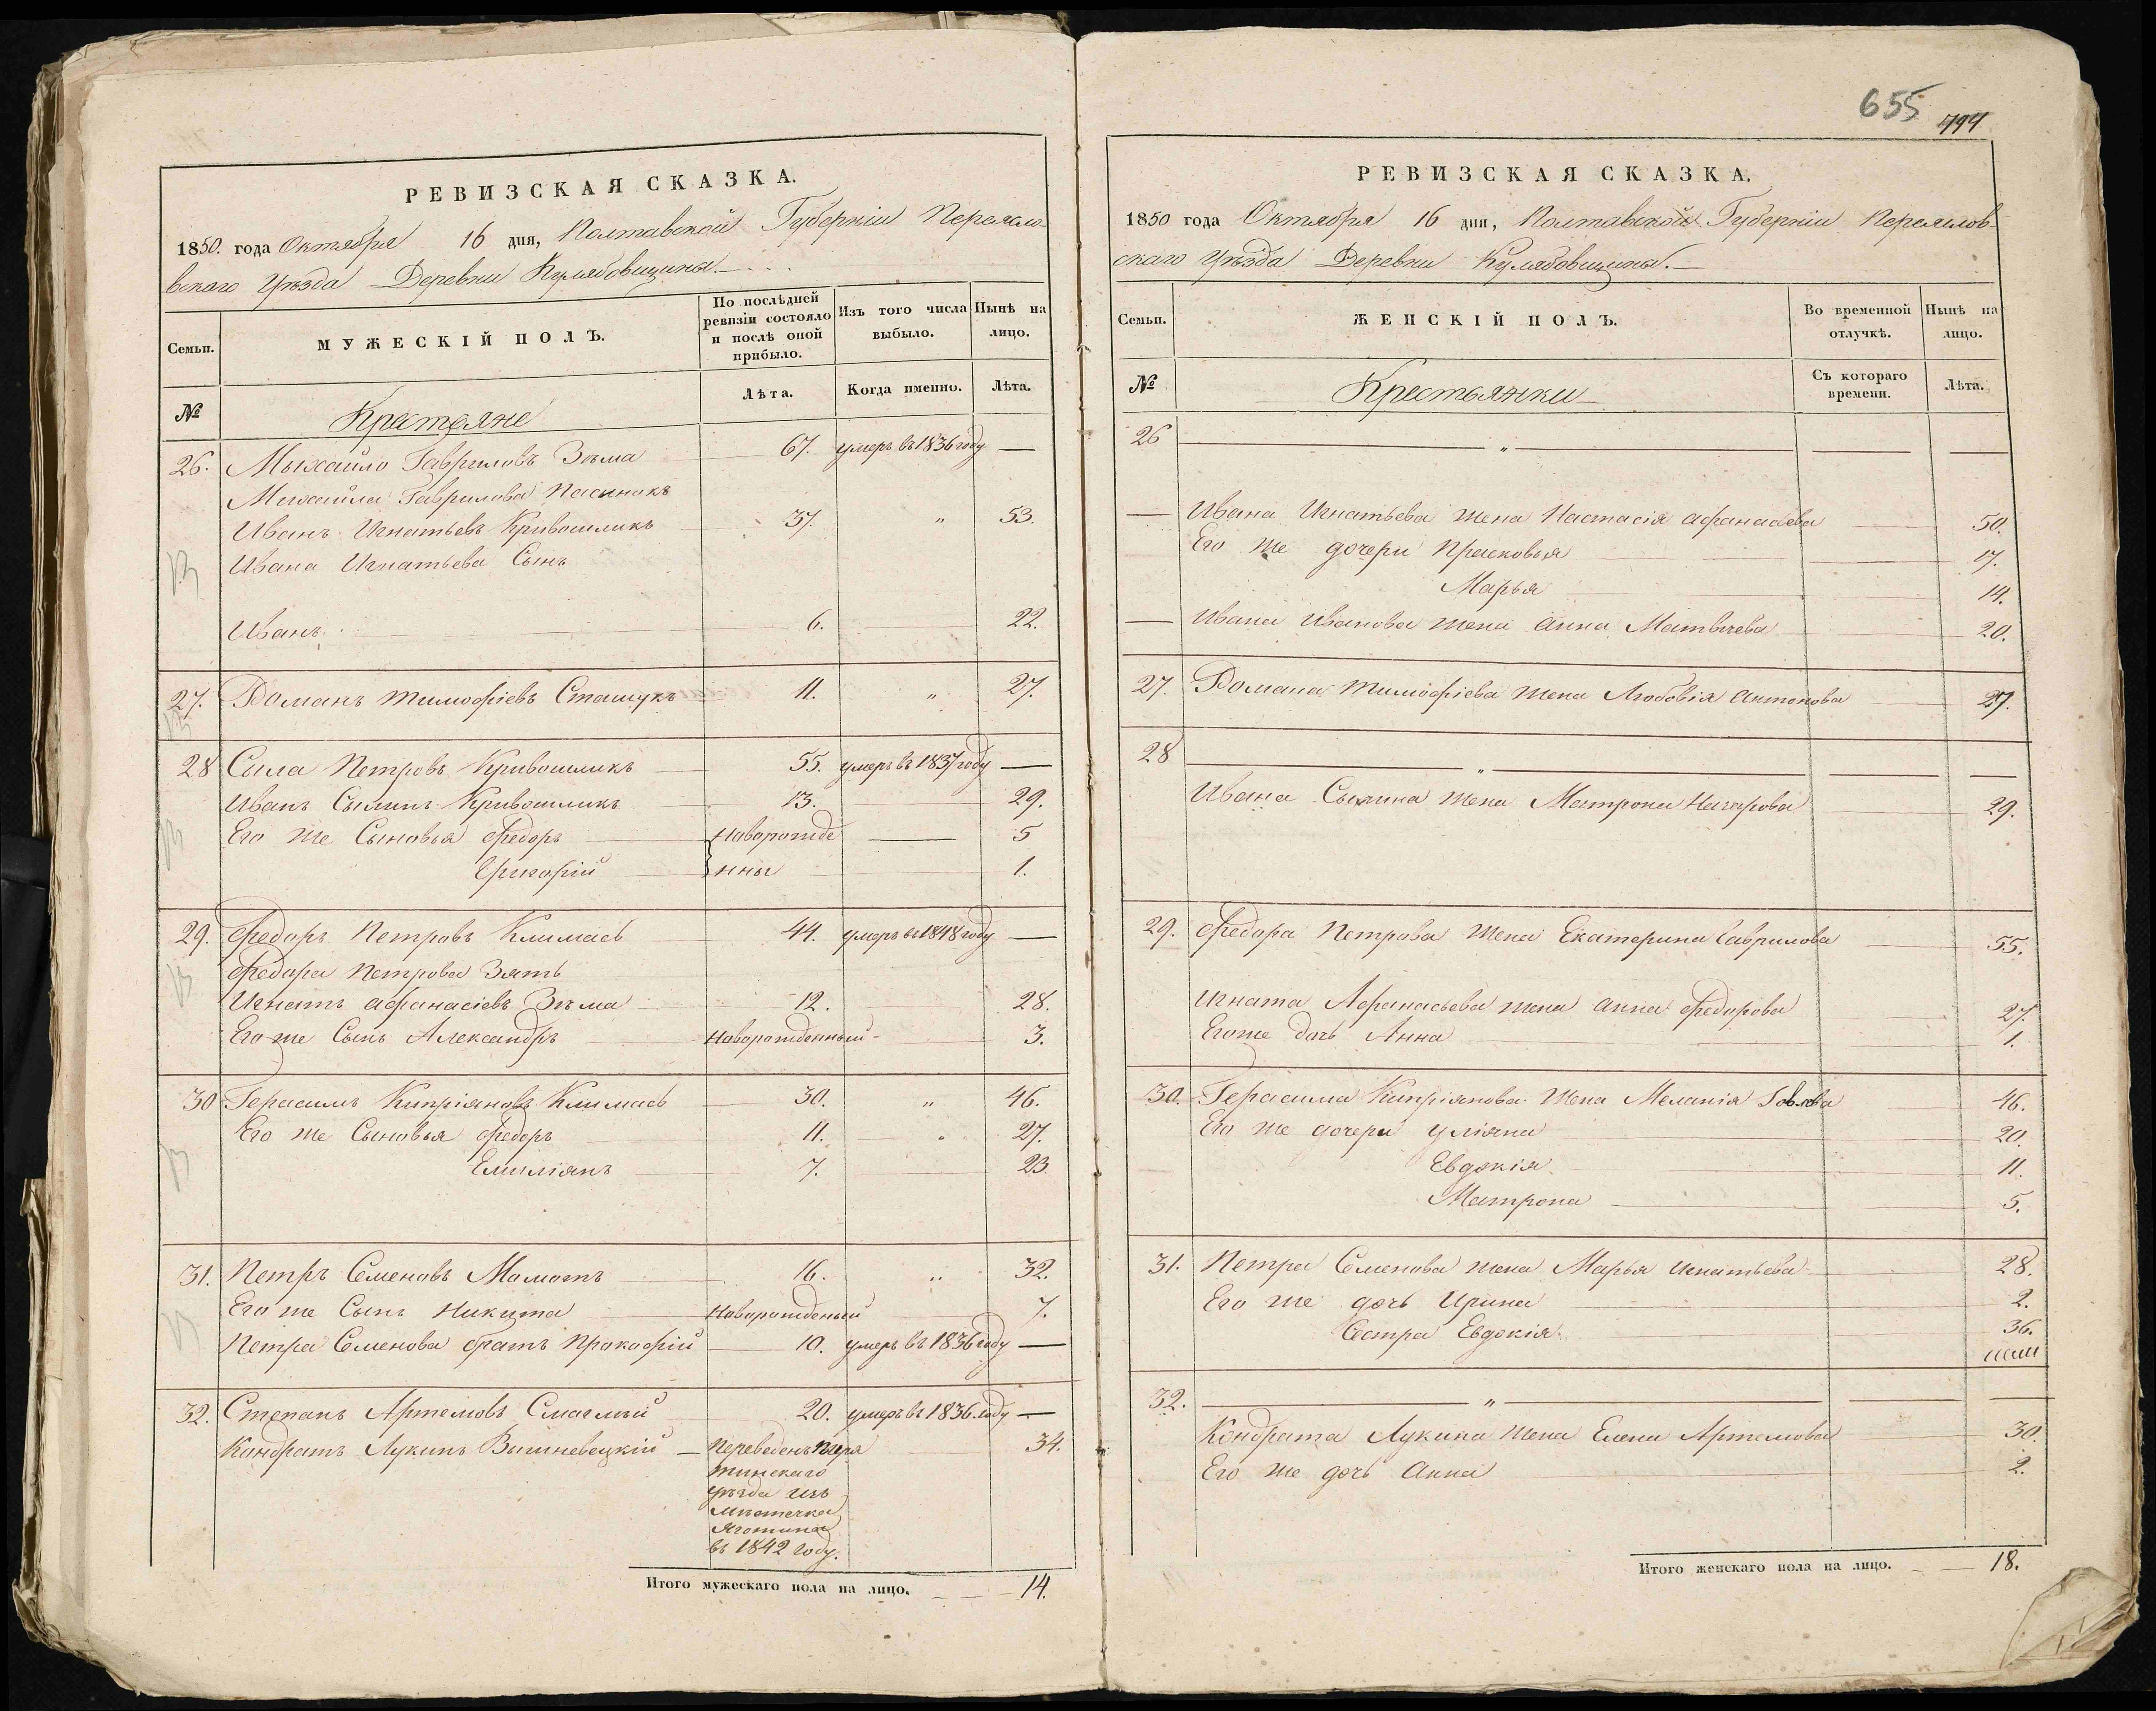 РЕВИЗСКАЯ СКАЗКА.
1850. года Октября 16 дня, Полтавской Губерніи Переясло-
вскаго Уѣзда Деревни Кулябовщины.
Семьи.
МУЖЕСКІЙ ПОЛЪ.
По послѣдней ревизіи состояло и послѣ оной прибыло.
Изъ того числа выбыло.
Нынѣ на лицо.
№
Крестьяне
Лѣта.
Когда именно.
Лѣта.
26. Михайло Гавриловъ Зѣма 67. умеръ въ 1836 году —
Михайла Гаврилова Пасинокъ
Иванъ Игнатьевъ Кривошликъ 37. " 53.
Ивана Игнатьева Сынъ
Иванъ 6. 22.
27. Романъ Тимофіевъ Сташукъ 11. " 27.
28 Сыла Петровъ Кривошликъ 55. умеръ въ 1837 году —
Иванъ Сылинъ Кривошликъ 13. 29.
Его же Сыновья Федоръ Наворожде 5
Григорій нны 1.
29. Федоръ Петровъ Климась 44. умеръ въ 1848 году —
Федора Петрова Зять
Игнатъ Афанасіевъ Зѣма 12. 28.
Его же Сынъ Александръ Наворожденный 3.
30 Герасимъ Кипріяновъ Климась 30. " 46.
Его же Сыновья Федоръ 11. " 27.
Емиліянъ 7. 23.
31. Петръ Семеновъ Мамотъ 16. " 32.
Его же Сынъ Никита Наворожденый 7.
Петра Семенова братъ Прокофій 10. умеръ въ 1836 году —
32. Степанъ Артемовъ Смаглый 20. умеръ въ 1836 году —
Кондратъ Лукинъ Вишневецкій — Переведенъ Пиря 34.
тинскаго
уѣзда изъ
мѣстечка
Яготина
въ 1842 году.
Итого мужескаго пола на лицо. 14.
655
РЕВИЗСКАЯ СКАЗКА.
1850 года Октября 16 дня, Полтавской Губерніи Переяслов-
скаго Уѣзда Деревни Кулябовщины.
Семьи.
ЖЕНСКІЙ ПОЛЪ.
Во временной отлучкѣ.
Нынѣ на лицо.
№
Крестьянки
Съ котораго времени.
Лѣта.
26 — " —
Ивана Игнатьева жена Настасія Афанасьева 50.
Его же дочери Прасковья 17.
Марья 14.
Ивана Иванова жена Анна Матвѣева 20.
27. Романа Тимофіева жена Любовія Антонова 27.
28 — " —
Ивана Сылина жена Матрона Назарова 29.
29. Федора Петрова жена Екатерина Гаврилова 55.
Игната Афанасьева жена Анна Федорова 27.
Его же дочь Анна 1.
30. Герасима Кипріянова жена Меланія 46.
Его же дочери Уліяна 20.
Евдокія 11.
Матрона 5.
31. Петра Семенова жена Марья Игнатьева 28.
Его же дочь Ирина 2.
Сестра Евдокія 36.
32. — " —
Кондрата Лукина жена Елена Артемова 30.
Его же дочь Анна 2.
Итого женскаго пола на лицо. 18.